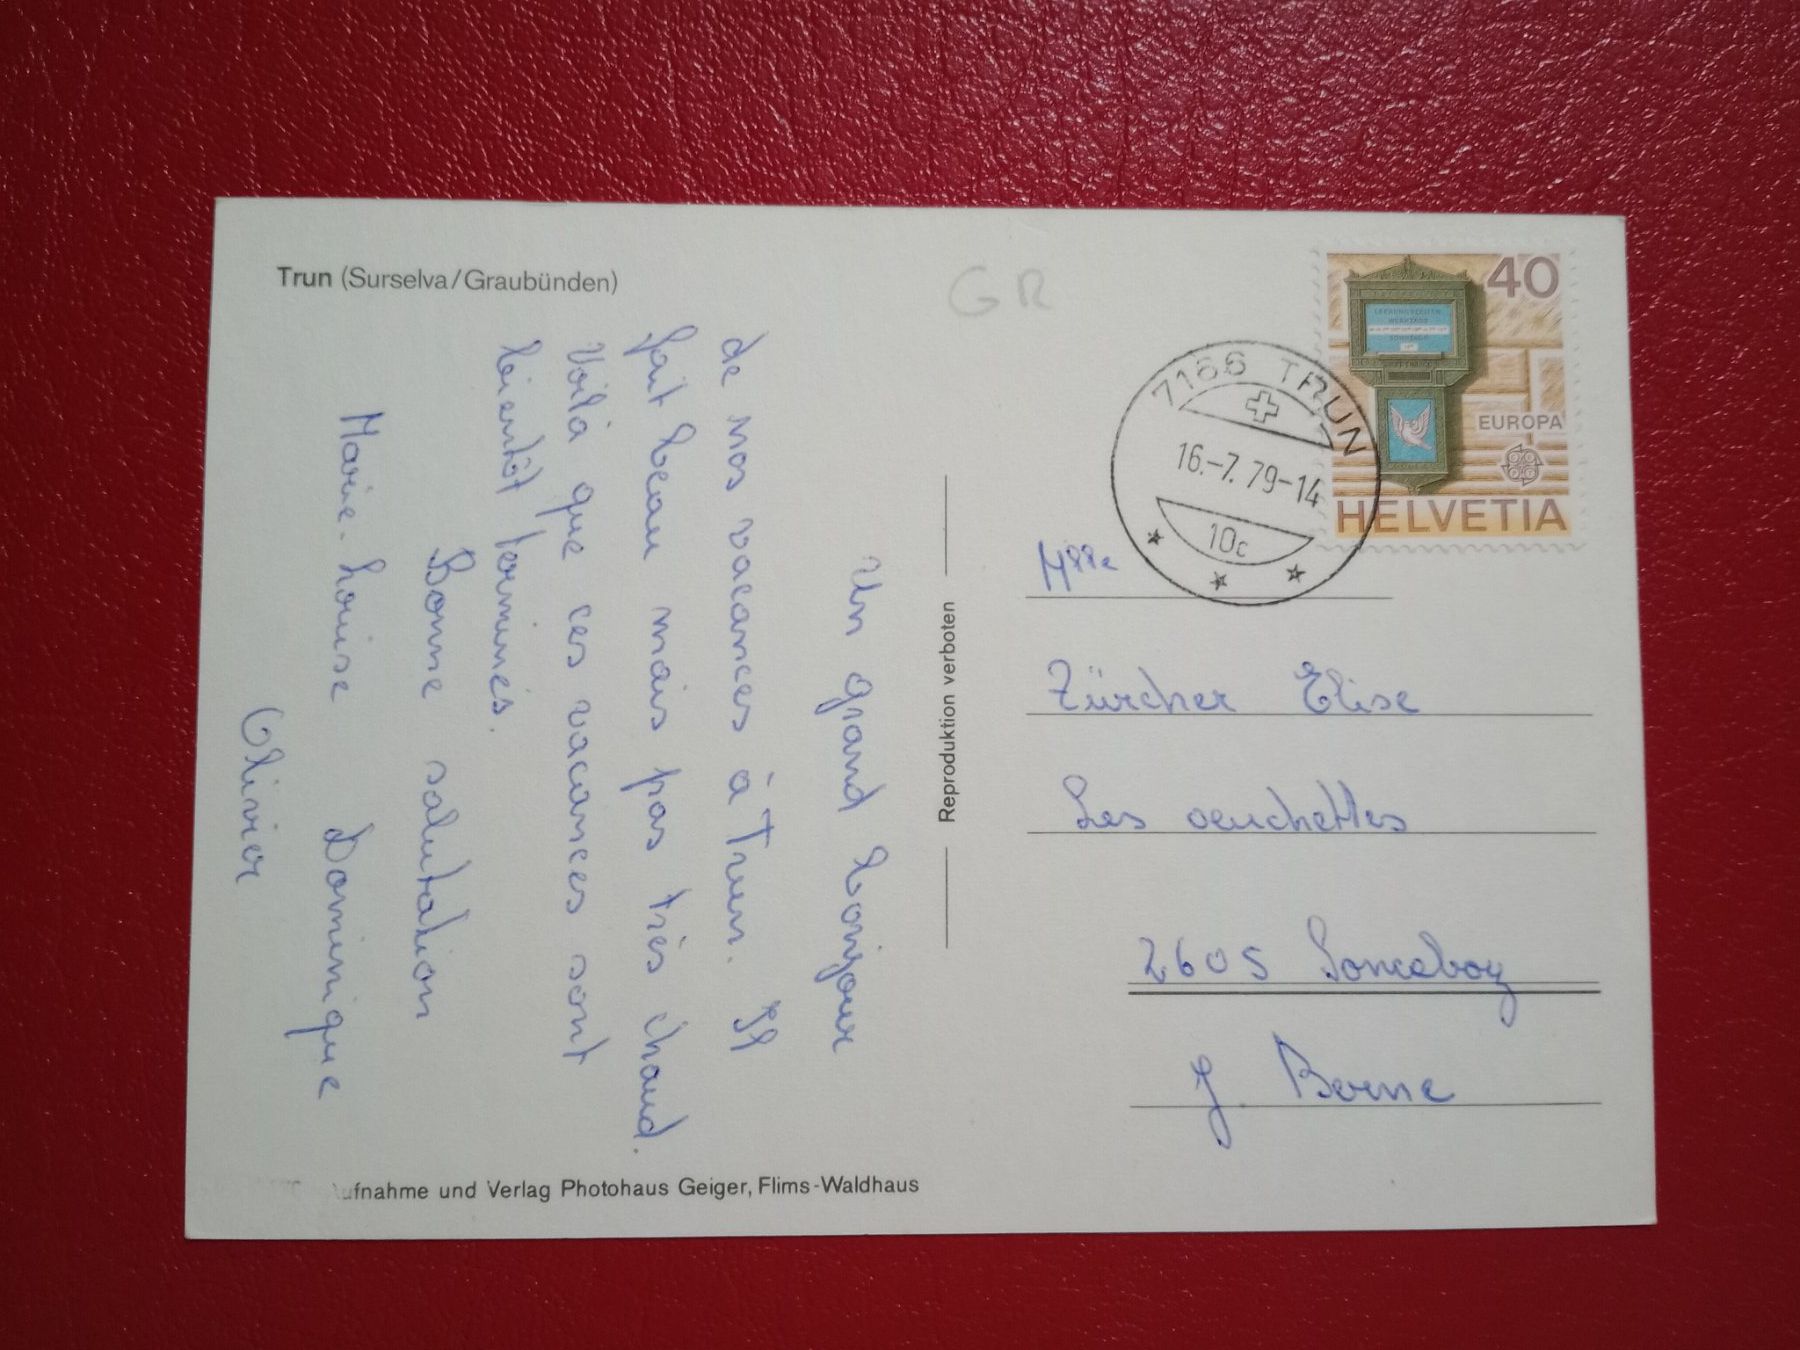 Trun (Surselva/Graubünden)
GR
Un grand bonjour
de nos vacances à Trun. Il
fait beau mais pas très chaud.
Voilà que ces vacances sont
bientôt terminés.
Bonne salutation
Marie-Louise Dominique
Olivier
Reproduktion verboten
ufnahme und Verlag Photohaus Geiger, Flims-Waldhaus
40
LEERUNGSZEITEN
WERKTAGS
SONNTAGS
EUROPA
HELVETIA
7166 TRUN
16.-7.79-14
10c
Mlle
Zürcher Elise
Les oeuchettes
2605 Sonceboz
J. Berne